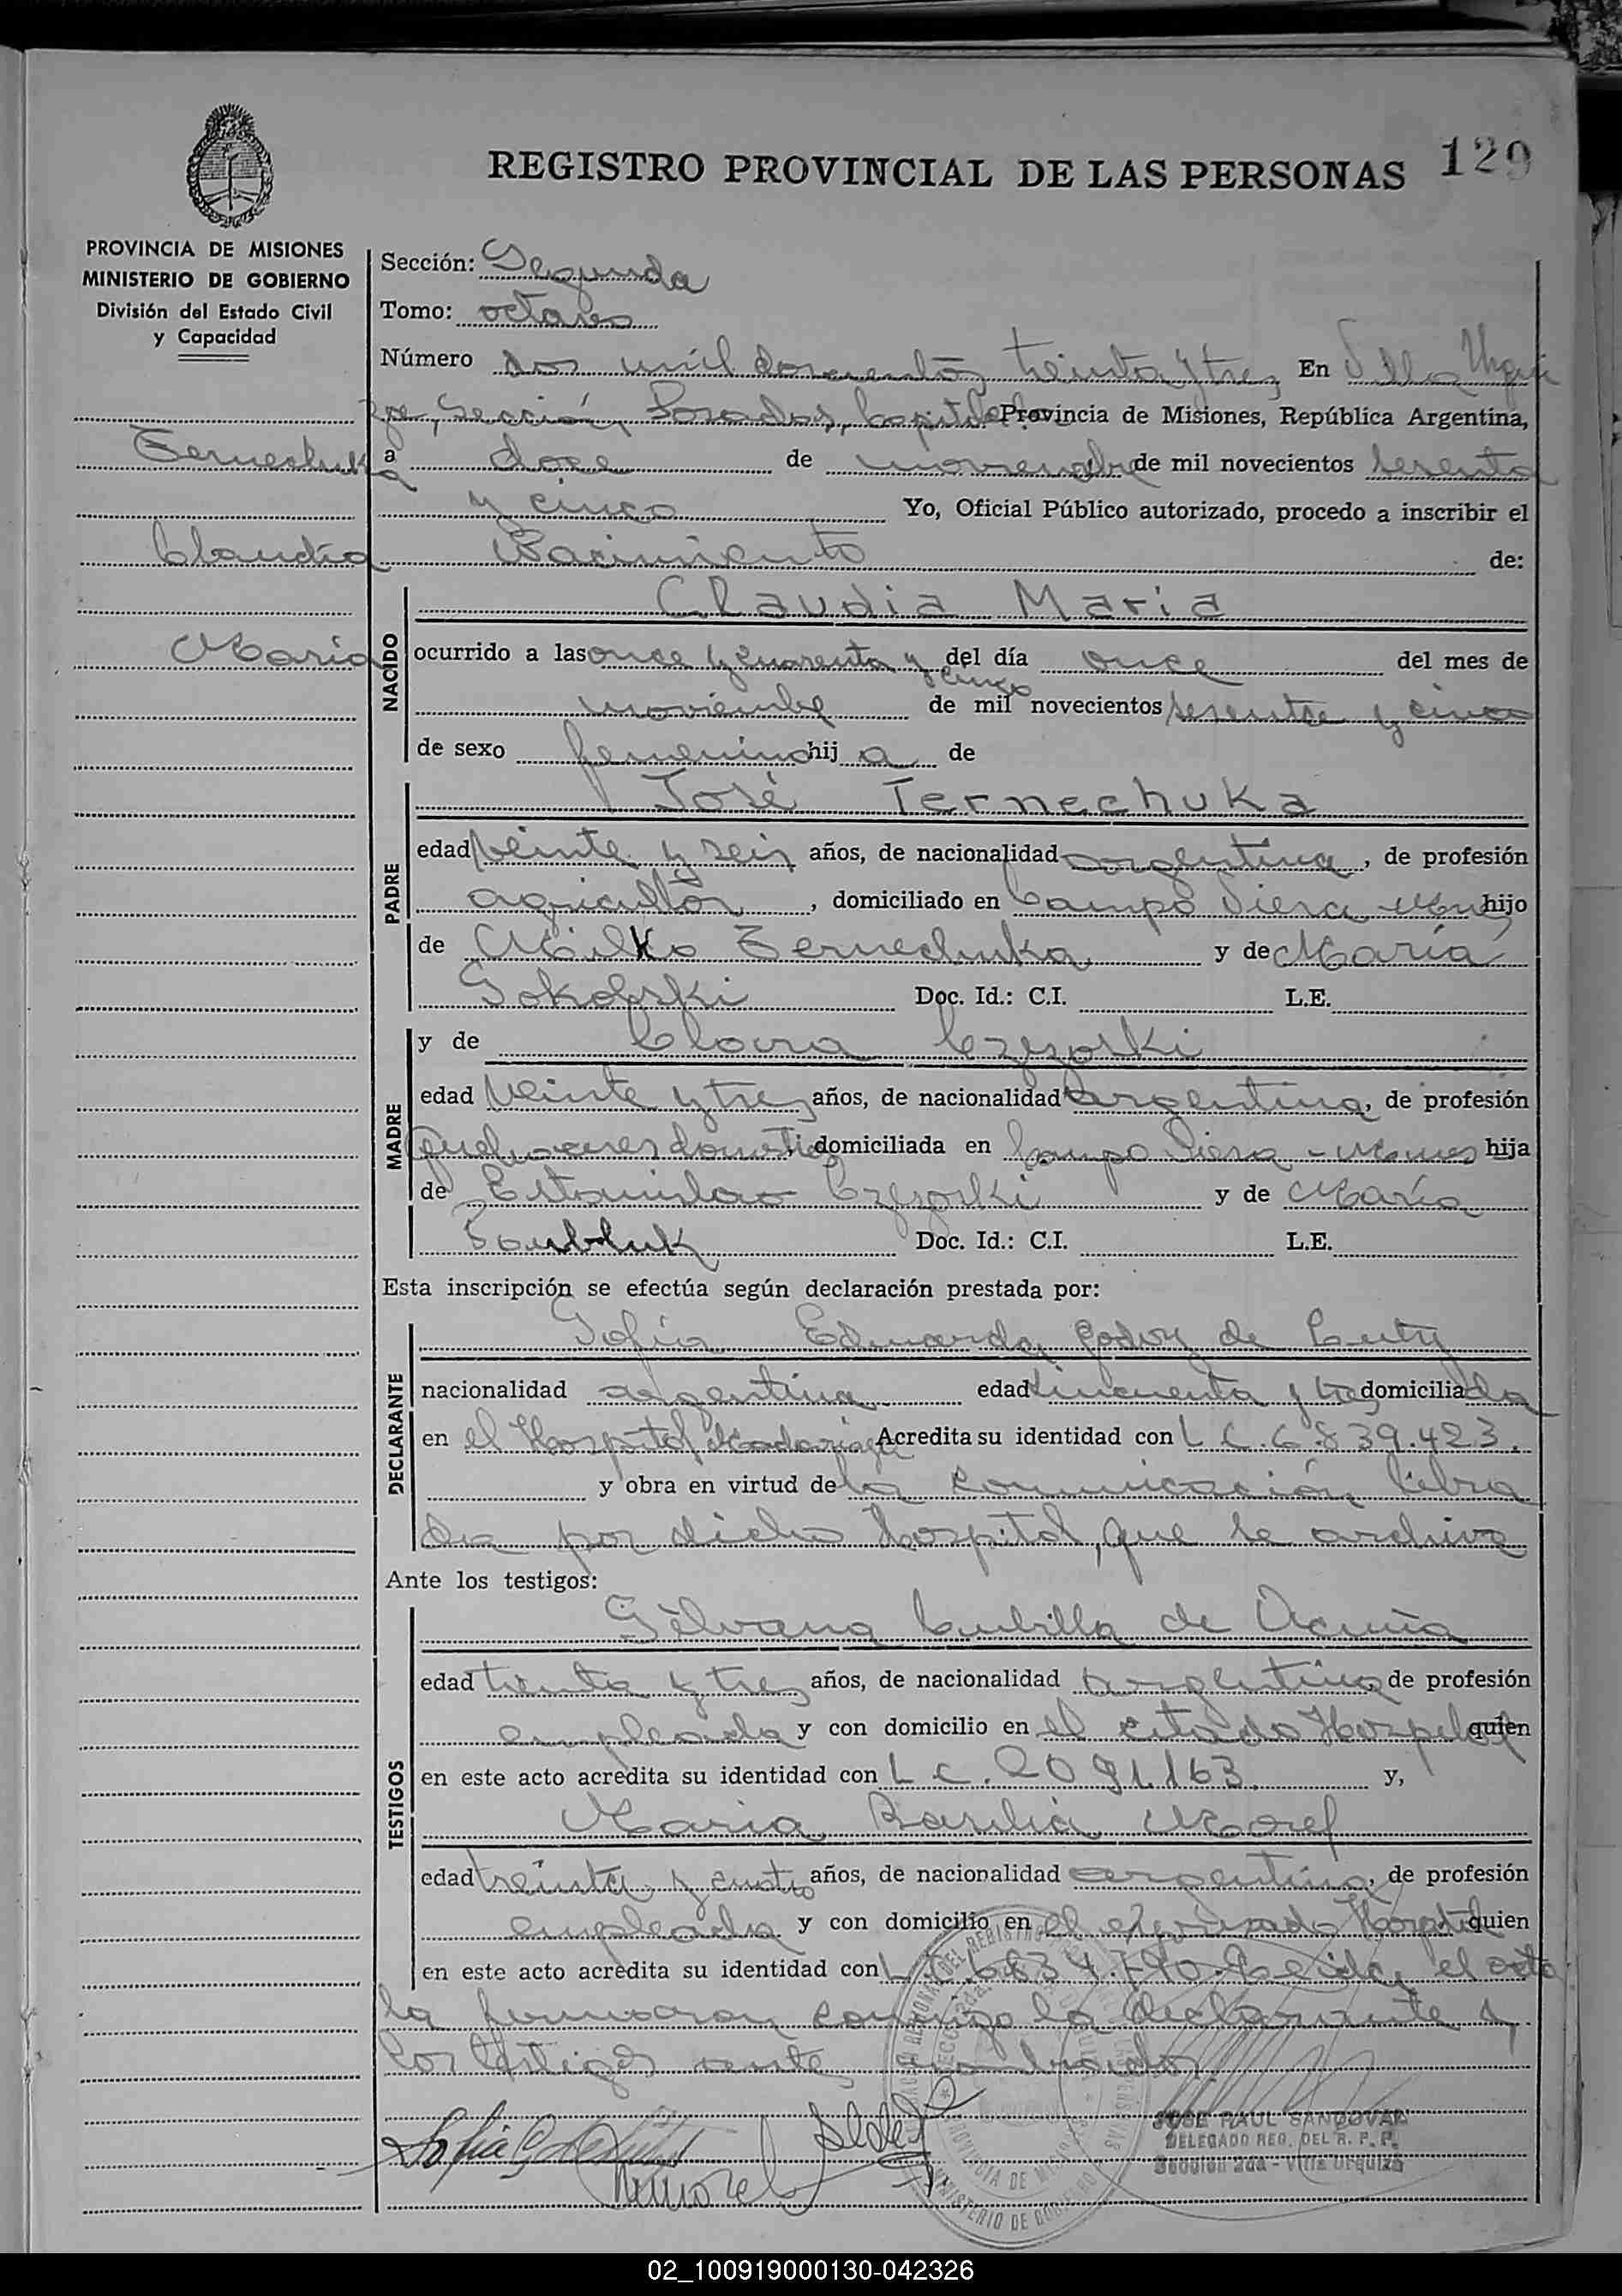 REGISTRO PROVINCIAL DE LAS PERSONAS 129
PROVINCIA DE MISIONES
MINISTERIO DE GOBIERNO
División del Estado Civil
y Capacidad
Ternechuka
Claudia
Maria
Sección: Segunda
Tomo: octavo
Número dos mil doscientos treinta y tres En Villa Urqui
za, Sección, Posadas, Capital Provincia de Misiones, República Argentina,
a doce de noviembre de mil novecientos sesenta
y cinco Yo, Oficial Público autorizado, procedo a inscribir el
Nacimiento de:
NACIDO
Claudia Maria
ocurrido a las once y cuarenta y cinco del día once del mes de
noviembre de mil novecientos sesenta y cinco
de sexo femenino hij a de
PADRE
José Ternechuka
edad veinte y seis años, de nacionalidad argentina, de profesión
agricultor, domiciliado en Campo Viera, hijo
de Milko Ternechuka y de María
Sokolski Doc. Id.: C.I. L.E.
MADRE
y de Clara Czeszorki
edad veinte y tres años, de nacionalidad argentina, de profesión
quehaceres domestic domiciliada en Campo Viera - hija
de Estanislao y de María
Doc. Id.: C.I. L.E.
Esta inscripción se efectúa según declaración prestada por:
DECLARANTE
Sofía Eduarda Godoy de
nacionalidad argentina edad cincuenta y tres domiciliada
en el Hospital Madariaga Acredita su identidad con L C. 6.839.423.
y obra en virtud de la comunicación libra
da por dicho hospital, que se archiva
Ante los testigos:
TESTIGOS
Silvana Cubilla de Acuña
edad treinta y tres años, de nacionalidad argentina, de profesión
empleada y con domicilio en el citado Hospital quien
en este acto acredita su identidad con L C. 2091.163. y,
Maria Basilia Morel
edad treinta y cuatro años, de nacionalidad argentina, de profesión
empleada y con domicilio en el expresado Hospital quien
en este acto acredita su identidad con L C. 6.834.790. Leida, el acta
la firmaron conmigo la declarante y
los testigos nombrados
JOSE RAUL SANDOVAL
DELEGADO REG. DEL R. P. P.
Sección 2da - Villa Urquiza
02_100919000130-042326